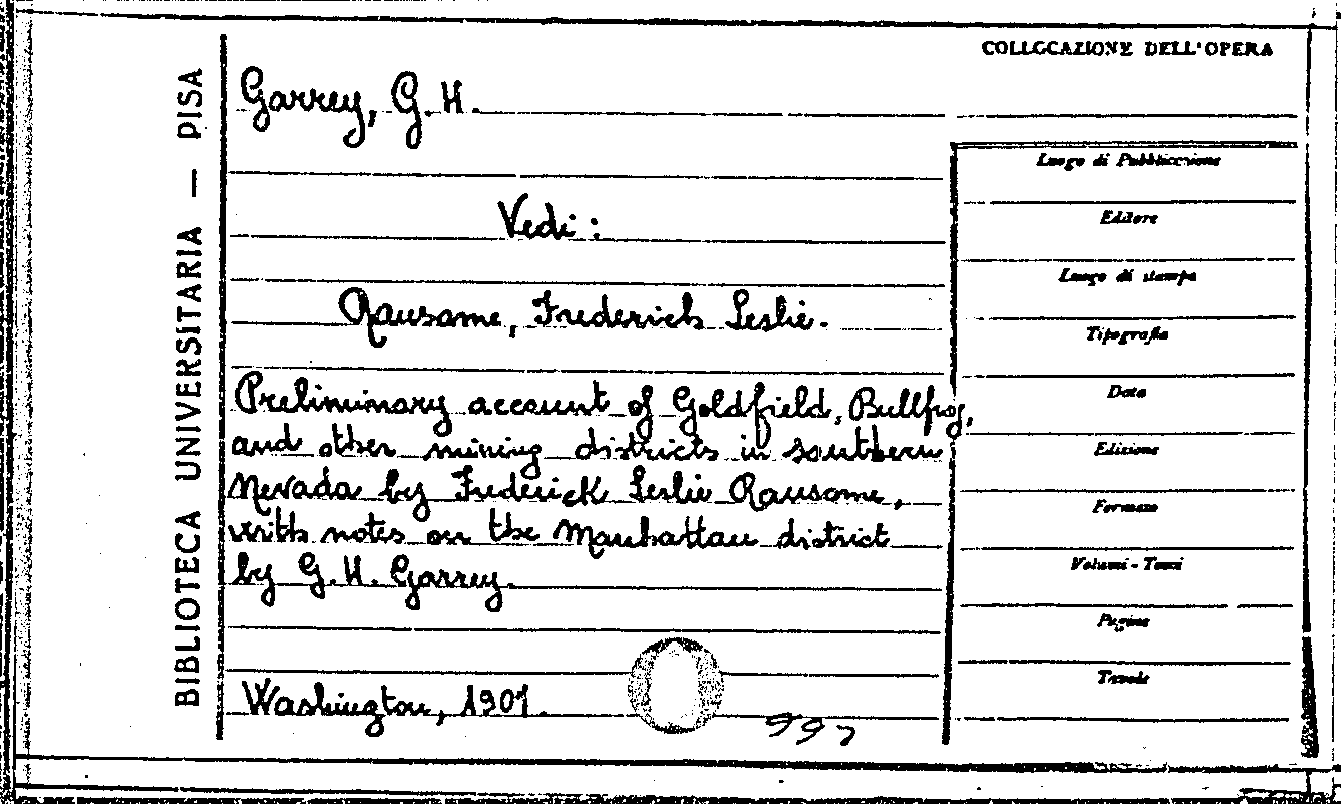 COLLOCAZIONE DELL'OPERA
BIBLIOTECA UNIVERSITARIA — PISA
Garrey, G. H.
Vedi :
Ransome, Frederich Leslie.
Preliminary account of Goldfield, Bullfrog,
and other mining districts in southern
Nevada by Frederick Leslie Ransome,
with notes on the Manhattan district
by G. H. Garrey.
Washington, 1907.
997
Luogo di Pubblicazione
Editore
Luogo di stampa
Tipografia
Data
Edizione
Formato
Volumi - Tomi
Pagine
Tavole